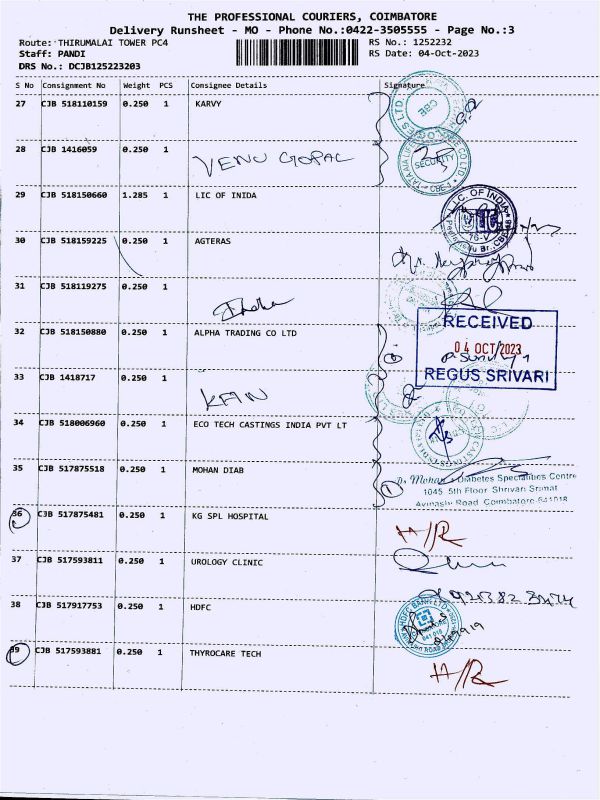 THE PROFESSIONAL COURIERS, COIMBATORE
Delivery Runsheet - MO - Phone No.:0422-3505555 - Page No.:3
Route: THIRUMALAI TOWER PC4 RS No.: 1252232
Staff: PANDI RS Date: 04-Oct-2023
DRS No.: DCJB125223203
S No Consignment No Weight PCS Consignee Details Signature
27 CJB 518110159 0.250 1 KARVY
28 CJB 1416059 0.250 1
VENU GOPAL
SECURITY
29 CJB 518150660 1.285 1 LIC OF INIDA
L.I.C. OF INDIA
30 CJB 518159225 0.250 1 AGTERAS
31 CJB 518119275 0.250 1
32 CJB 518150880 0.250 1 ALPHA TRADING CO LTD
RECEIVED
04 OCT 2023
REGUS SRIVARI
33 CJB 1418717 0.250 1
34 CJB 518006960 0.250 1 ECO TECH CASTINGS INDIA PVT LT
35 CJB 517875518 0.250 1 MOHAN DIAB
Dr Mohan's Diabetes Specialities Centre
1045 5th Floor Shrivari Srimat
Avinashi Road Coimbatore-641018
36 CJB 517875481 0.250 1 KG SPL HOSPITAL
H/R
37 CJB 517593811 0.250 1 UROLOGY CLINIC
38 CJB 517917753 0.250 1 HDFC
HDFC BANK LTD
39 CJB 517593881 0.250 1 THYROCARE TECH
H/R